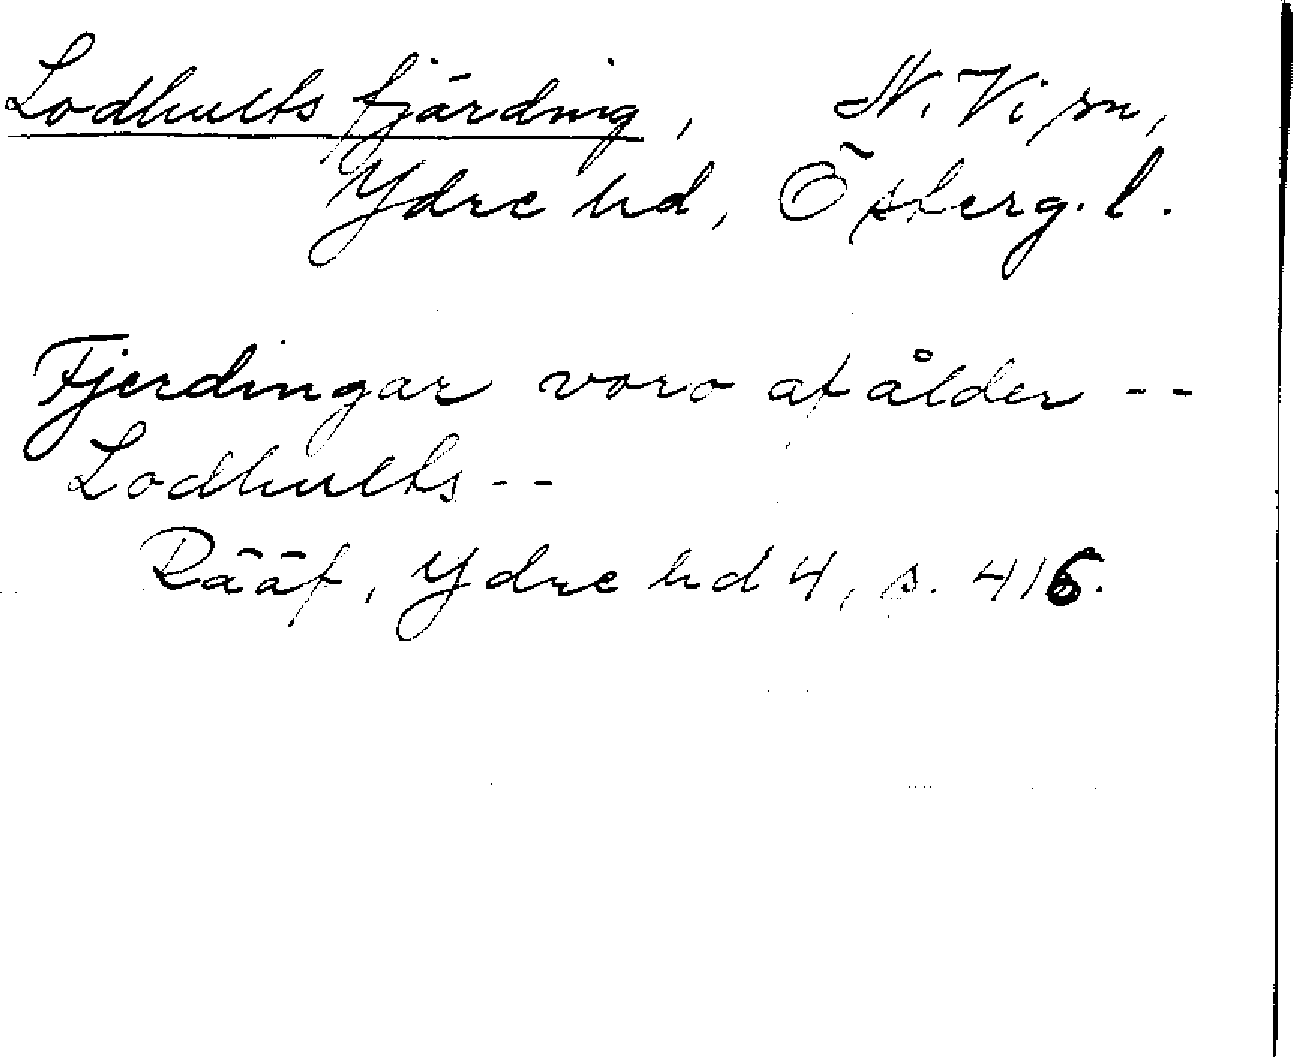 Lodhults fjärding, N. Vi sn,
Ydre hd, Österg. l.
Fjerdingar voro af ålder --
Lodhults --
Rääf, Ydre hd 4, s. 416.